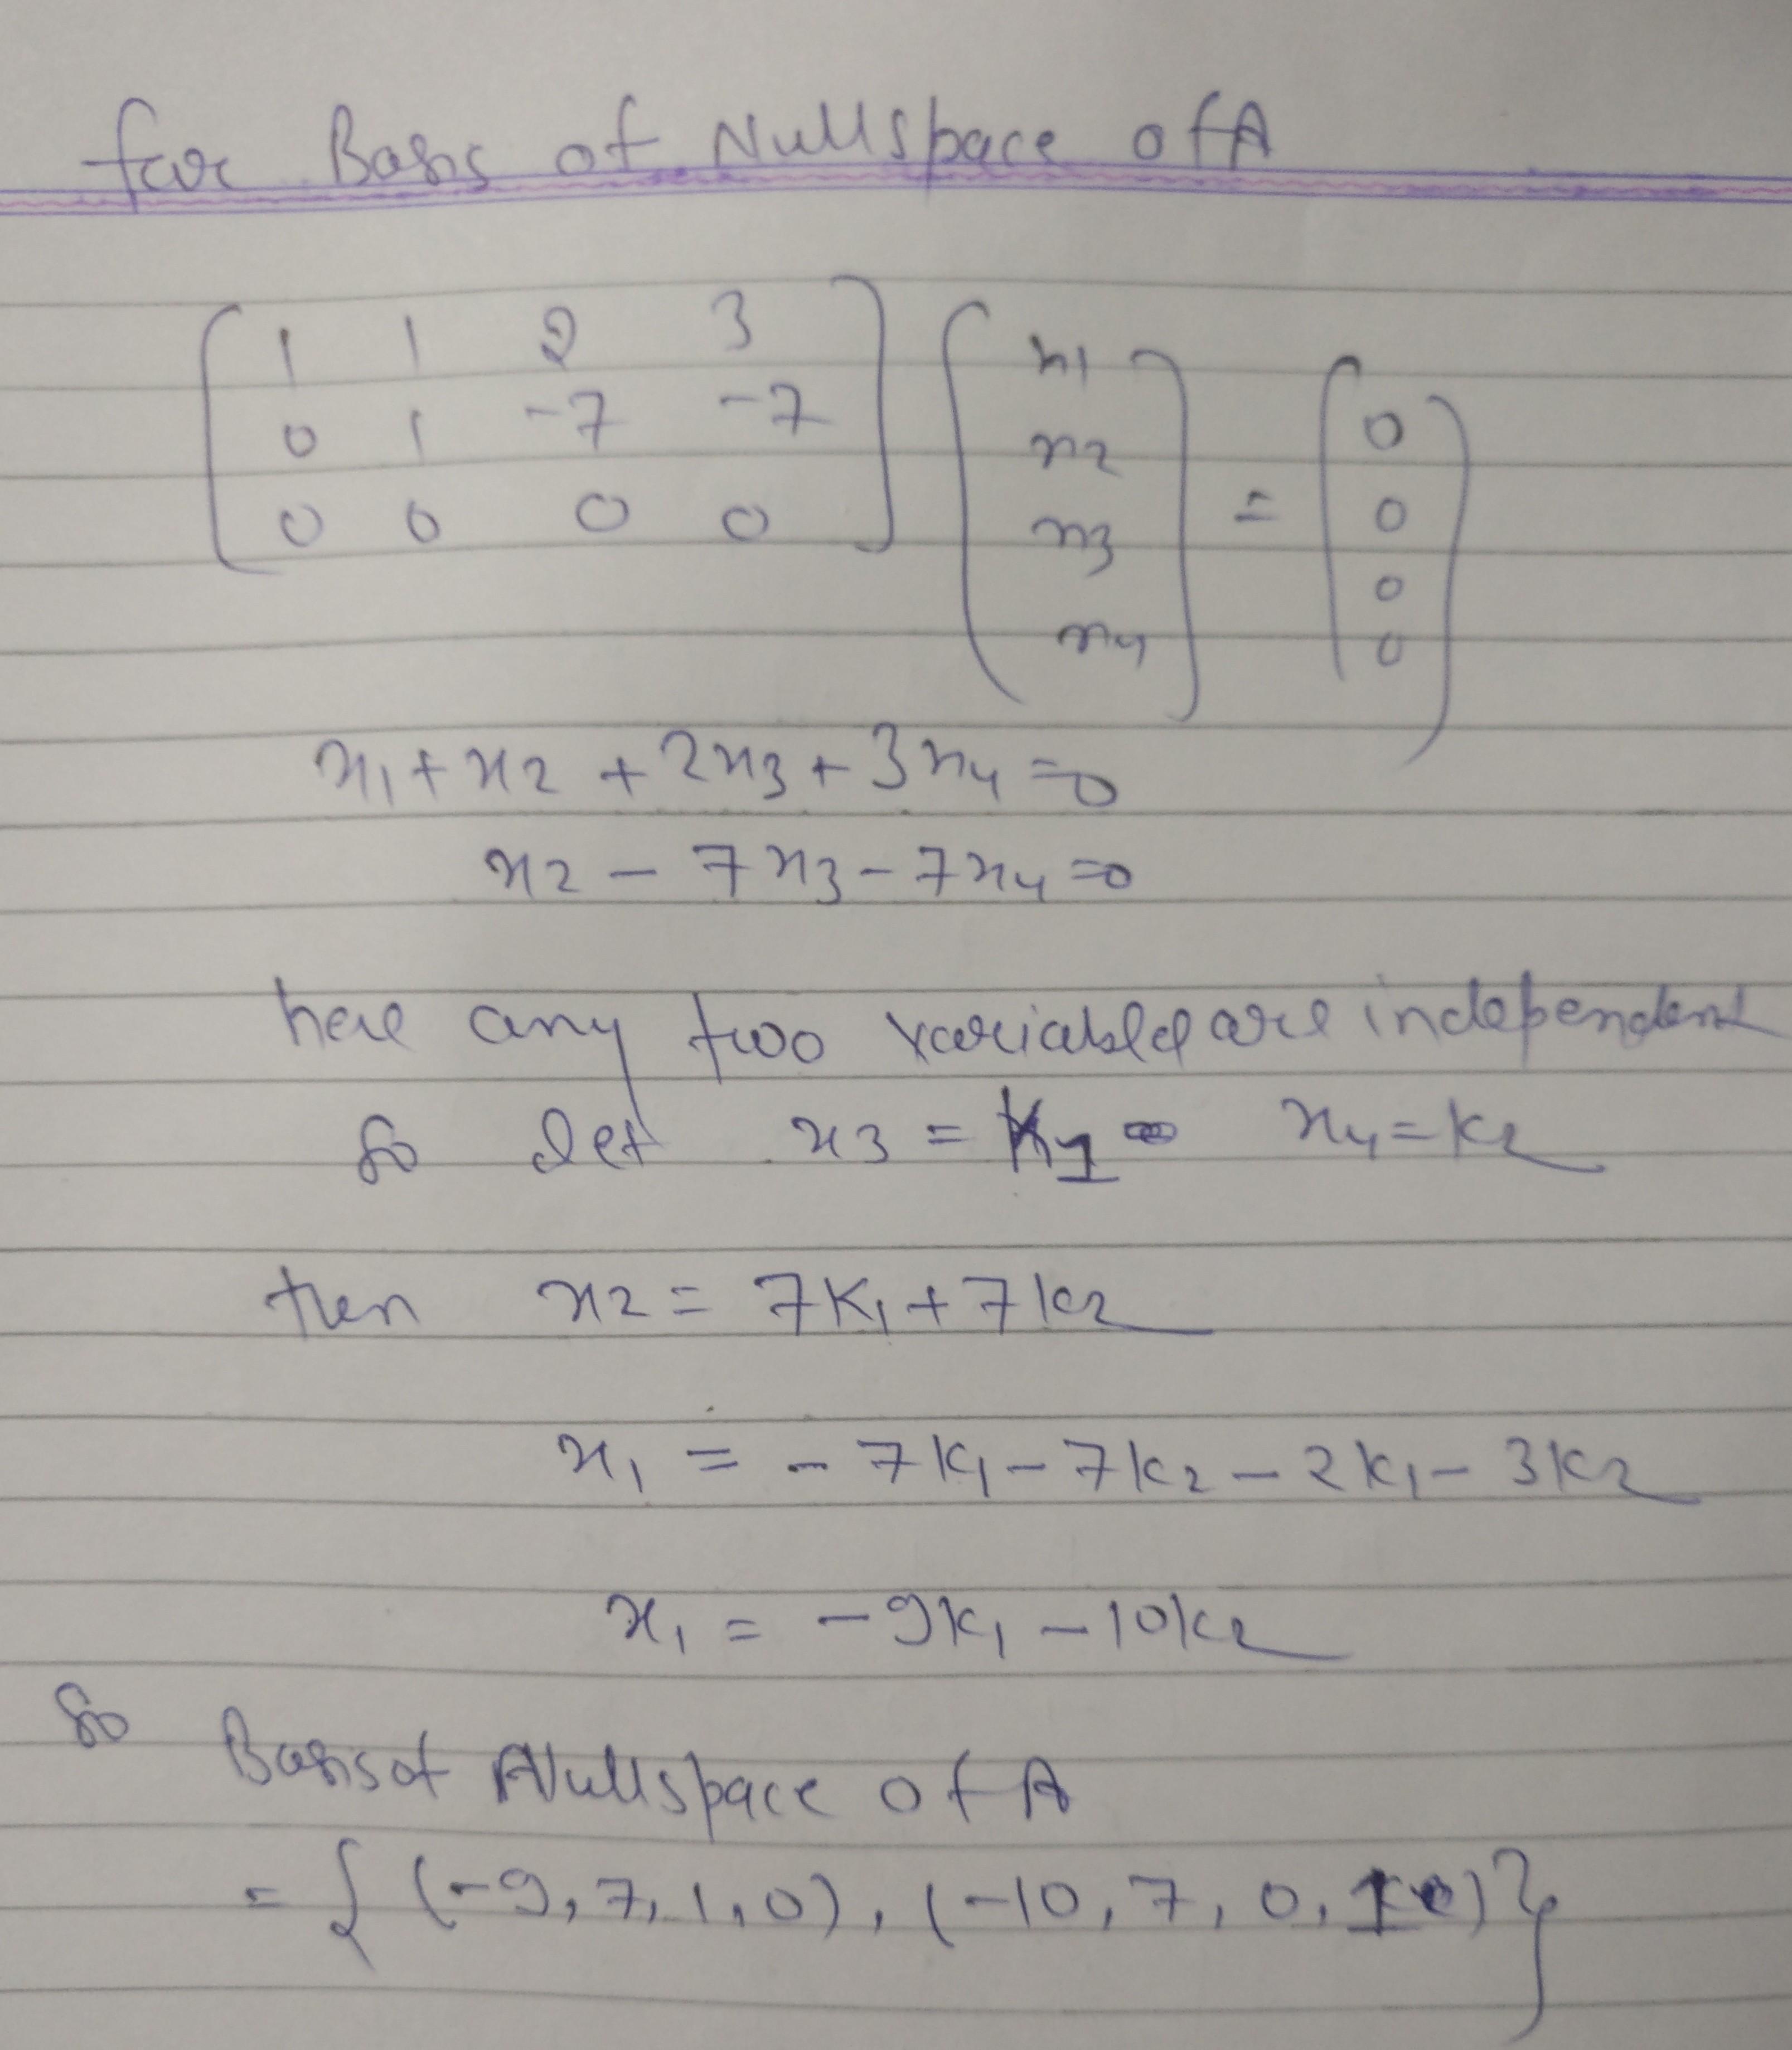 for Basis of Nullspace of A
[1 1 2 3
0 1 -7 -7
0 0 0 0] [x1
x2
x3
x4] = [0
0
0
0]
x1 + x2 + 2x3 + 3x4 = 0
x2 - 7x3 - 7x4 = 0
here any two variable are independent
So let x3 = K1 x4 = k2
then x2 = 7K1 + 7k2
x1 = - 7k1 - 7k2 - 2k1 - 3k2
x1 = -9k1 - 10k2
So Basis of Nullspace of A
= { (-9, 7, 1, 0), (-10, 7, 0, 1) }